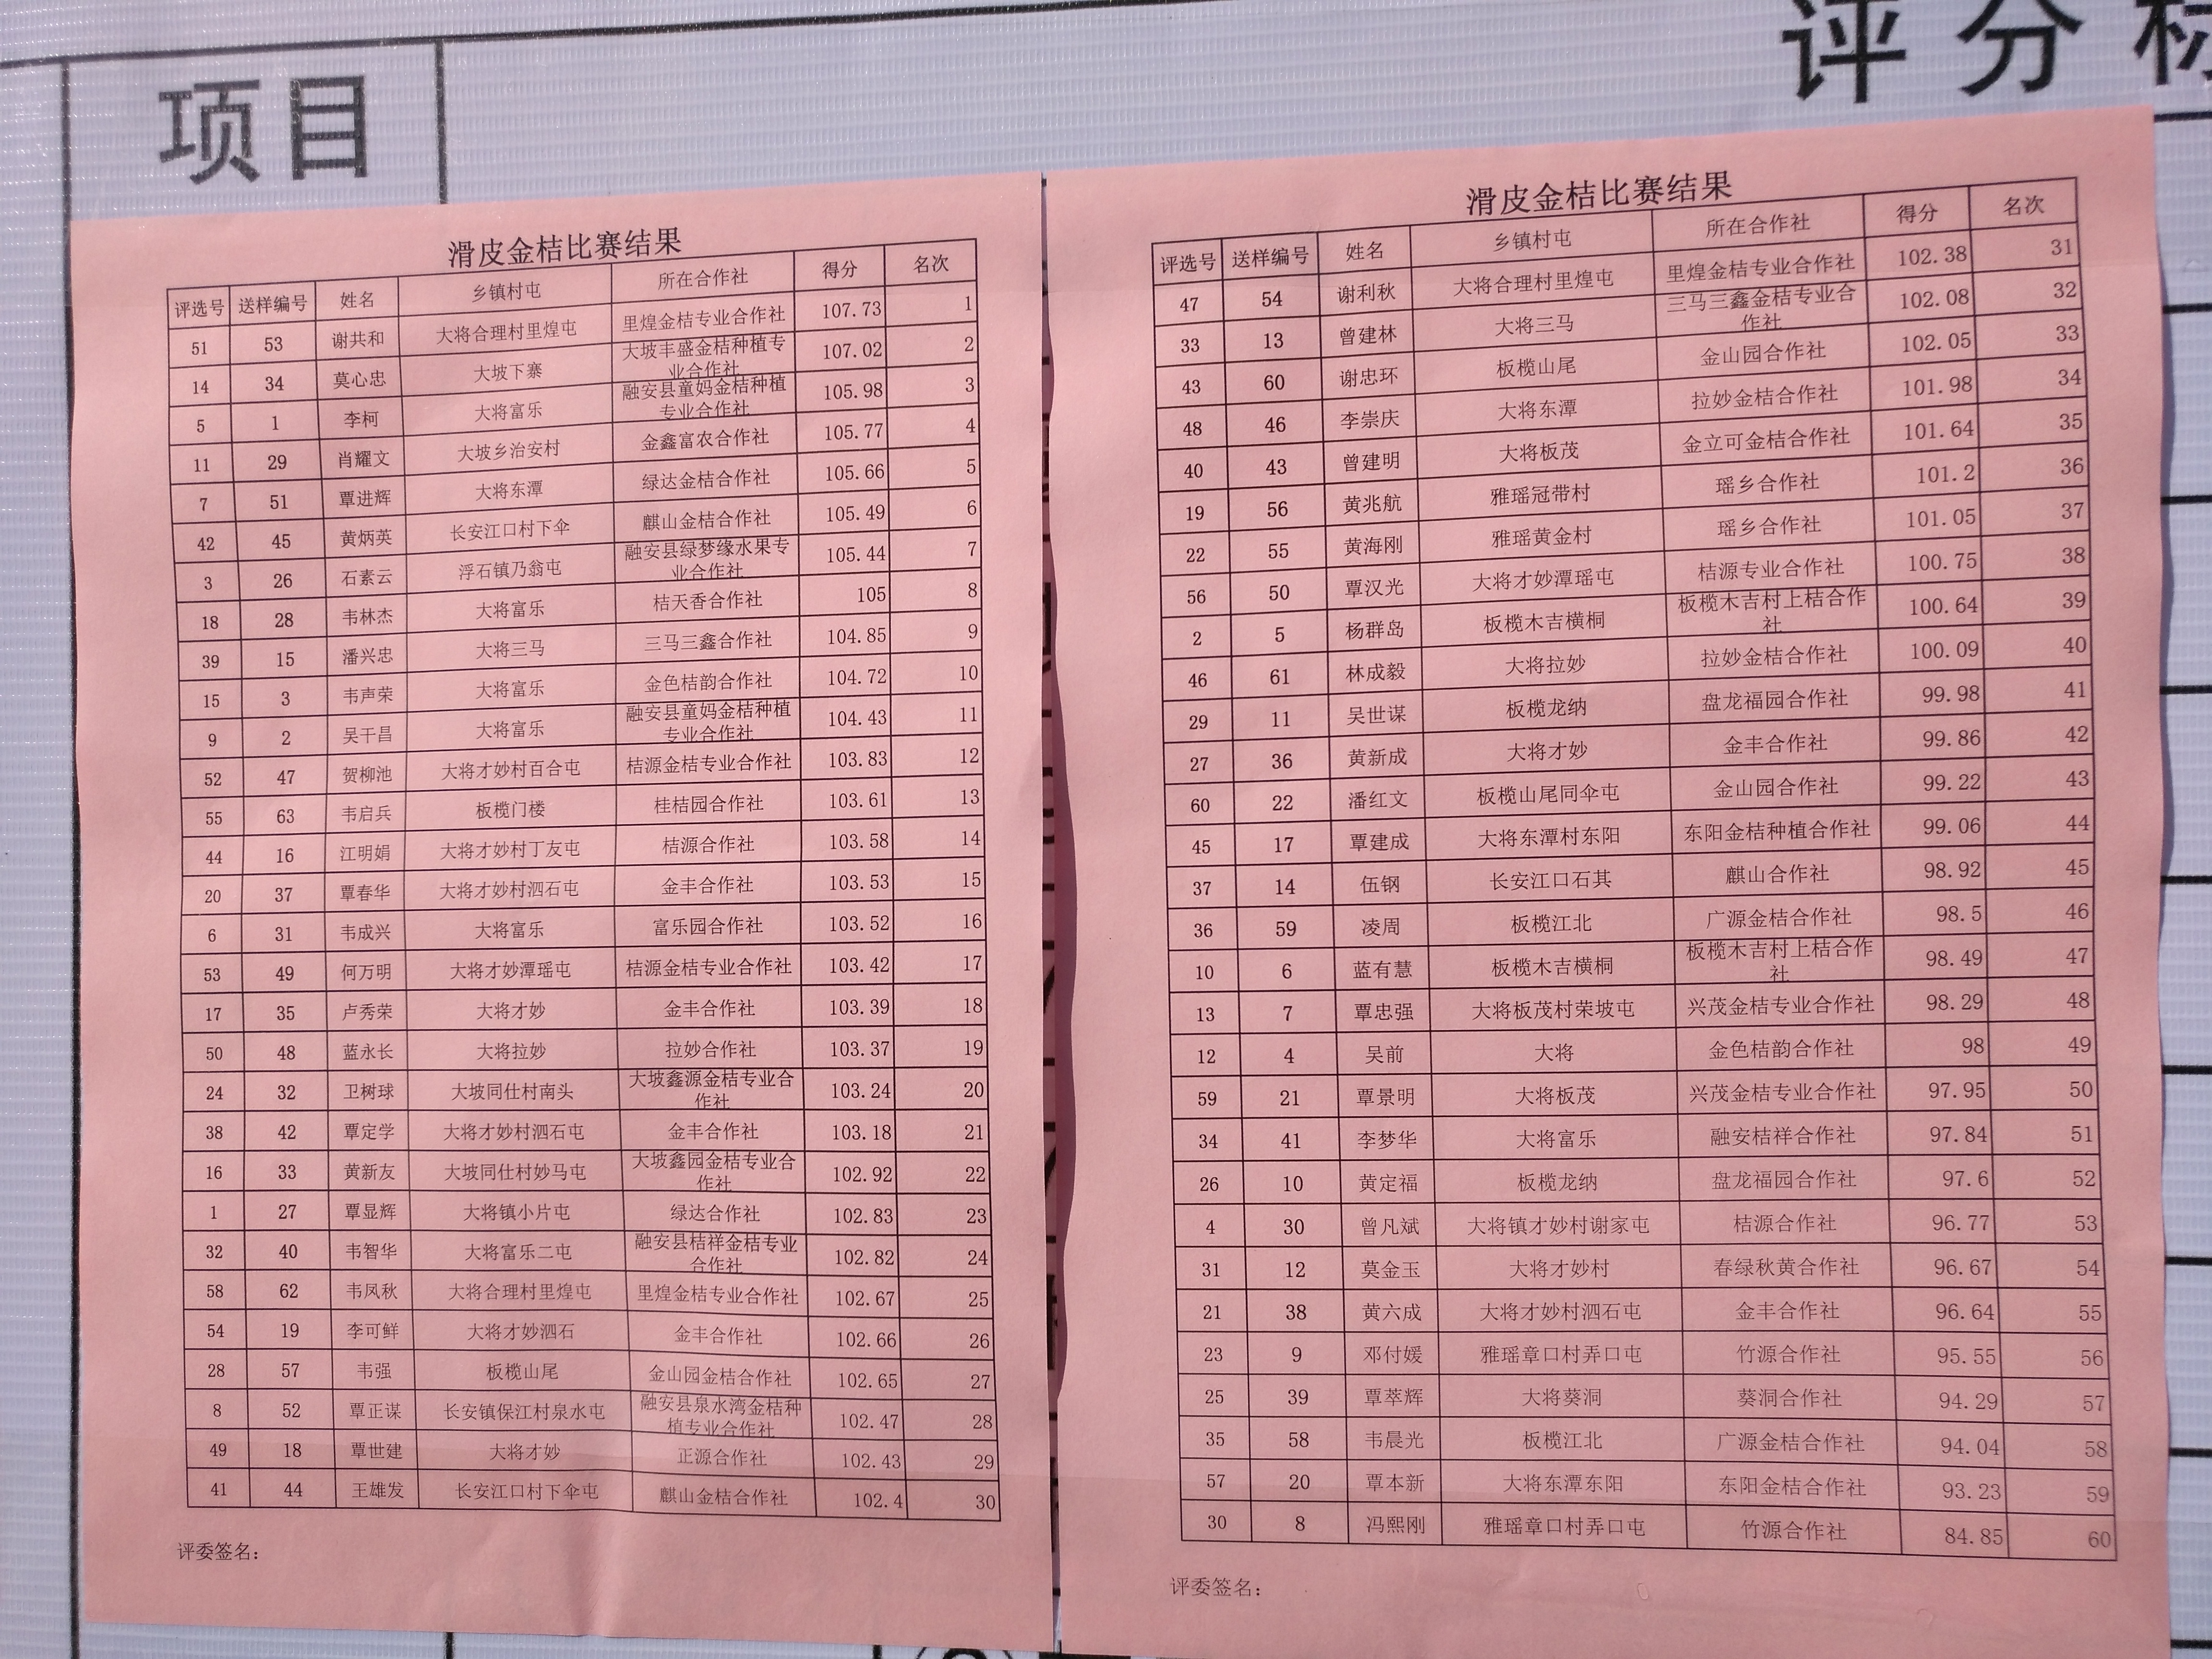 项目
评分标
滑皮金桔比赛结果
评选号 送样编号 姓名 乡镇村屯 所在合作社 得分 名次
51 53 谢共和 大将合理村里煌屯 里煌金桔专业合作社 107.73 1
14 34 莫心忠 大坡下寨 大坡丰盛金桔种植专业合作社 107.02 2
5 1 李柯 大将富乐 融安县童妈金桔种植专业合作社 105.98 3
11 29 肖耀文 大坡乡治安村 金鑫富农合作社 105.77 4
7 51 覃进辉 大将东潭 绿达金桔合作社 105.66 5
42 45 黄炳英 长安江口村下伞 麒山金桔合作社 105.49 6
3 26 石素云 浮石镇乃翁屯 融安县绿梦缘水果专业合作社 105.44 7
18 28 韦林杰 大将富乐 桔天香合作社 105 8
39 15 潘兴忠 大将三马 三马三鑫合作社 104.85 9
15 3 韦声荣 大将富乐 金色桔韵合作社 104.72 10
9 2 吴干昌 大将富乐 融安县童妈金桔种植专业合作社 104.43 11
52 47 贺柳池 大将才妙村百合屯 桔源金桔专业合作社 103.83 12
55 63 韦启兵 板榄门楼 桂桔园合作社 103.61 13
44 16 江明娟 大将才妙村丁友屯 桔源合作社 103.58 14
20 37 覃春华 大将才妙村泗石屯 金丰合作社 103.53 15
6 31 韦成兴 大将富乐 富乐园合作社 103.52 16
53 49 何万明 大将才妙潭瑶屯 桔源金桔专业合作社 103.42 17
17 35 卢秀荣 大将才妙 金丰合作社 103.39 18
50 48 蓝永长 大将拉妙 拉妙合作社 103.37 19
24 32 卫树球 大坡同仕村南头 大坡鑫源金桔专业合作社 103.24 20
38 42 覃定学 大将才妙村泗石屯 金丰合作社 103.18 21
16 33 黄新友 大坡同仕村妙马屯 大坡鑫园金桔专业合作社 102.92 22
1 27 覃显辉 大将镇小片屯 绿达合作社 102.83 23
32 40 韦智华 大将富乐二屯 融安县桔祥金桔专业合作社 102.82 24
58 62 韦凤秋 大将合理村里煌屯 里煌金桔专业合作社 102.67 25
54 19 李可鲜 大将才妙泗石 金丰合作社 102.66 26
28 57 韦强 板榄山尾 金山园金桔合作社 102.65 27
8 52 覃正谋 长安镇保江村泉水屯 融安县泉水湾金桔种植专业合作社 102.47 28
49 18 覃世建 大将才妙 正源合作社 102.43 29
41 44 王雄发 长安江口村下伞屯 麒山金桔合作社 102.4 30
评委签名：
滑皮金桔比赛结果
评选号 送样编号 姓名 乡镇村屯 所在合作社 得分 名次
47 54 谢利秋 大将合理村里煌屯 里煌金桔专业合作社 102.38 31
33 13 曾建林 大将三马 三马三鑫金桔专业合作社 102.08 32
43 60 谢忠环 板榄山尾 金山园合作社 102.05 33
48 46 李崇庆 大将东潭 拉妙金桔合作社 101.98 34
40 43 曾建明 大将板茂 金立可金桔合作社 101.64 35
19 56 黄兆航 雅瑶冠带村 瑶乡合作社 101.2 36
22 55 黄海刚 雅瑶黄金村 瑶乡合作社 101.05 37
56 50 覃汉光 大将才妙潭瑶屯 桔源专业合作社 100.75 38
2 5 杨群岛 板榄木吉横桐 板榄木吉村上桔合作社 100.64 39
46 61 林成毅 大将拉妙 拉妙金桔合作社 100.09 40
29 11 吴世谋 板榄龙纳 盘龙福园合作社 99.98 41
27 36 黄新成 大将才妙 金丰合作社 99.86 42
60 22 潘红文 板榄山尾同伞屯 金山园合作社 99.22 43
45 17 覃建成 大将东潭村东阳 东阳金桔种植合作社 99.06 44
37 14 伍钢 长安江口石其 麒山合作社 98.92 45
36 59 凌周 板榄江北 广源金桔合作社 98.5 46
10 6 蓝有慧 板榄木吉横桐 板榄木吉村上桔合作社 98.49 47
13 7 覃忠强 大将板茂村荣坡屯 兴茂金桔专业合作社 98.29 48
12 4 吴前 大将 金色桔韵合作社 98 49
59 21 覃景明 大将板茂 兴茂金桔专业合作社 97.95 50
34 41 李梦华 大将富乐 融安桔祥合作社 97.84 51
26 10 黄定福 板榄龙纳 盘龙福园合作社 97.6 52
4 30 曾凡斌 大将镇才妙村谢家屯 桔源合作社 96.77 53
31 12 莫金玉 大将才妙村 春绿秋黄合作社 96.67 54
21 38 黄六成 大将才妙村泗石屯 金丰合作社 96.64 55
23 9 邓付媛 雅瑶章口村弄口屯 竹源合作社 95.55 56
25 39 覃萃辉 大将葵洞 葵洞合作社 94.29 57
35 58 韦晨光 板榄江北 广源金桔合作社 94.04 58
57 20 覃本新 大将东潭东阳 东阳金桔合作社 93.23 59
30 8 冯熙刚 雅瑶章口村弄口屯 竹源合作社 84.85 60
评委签名：